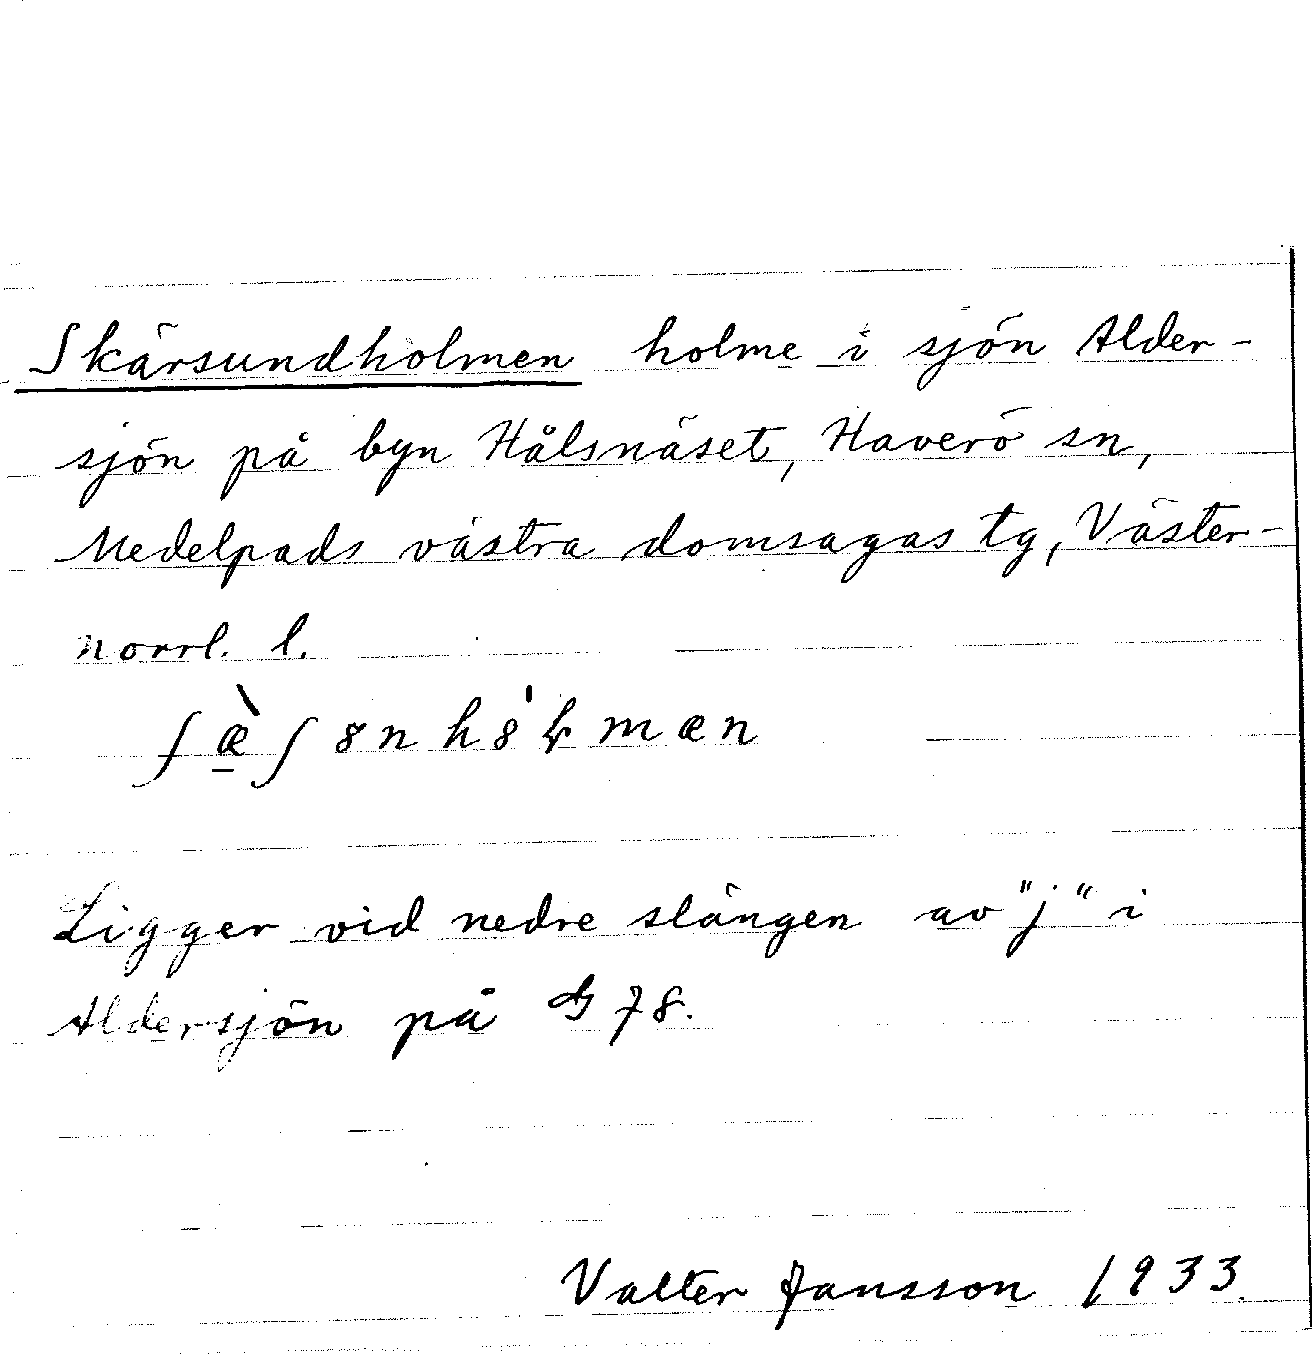 Skärsundholmen holme i sjön Alder-
sjön på byn Hålsnäset, Haverö sn,
Medelpads västra domsagas tg, Väster-
norrl. l.
ʃæ̀ʃ8nh8́ɫmæn
Ligger vid nedre slängen av "j" i
Aldersjön på 78.
Valter Jansson 1933.